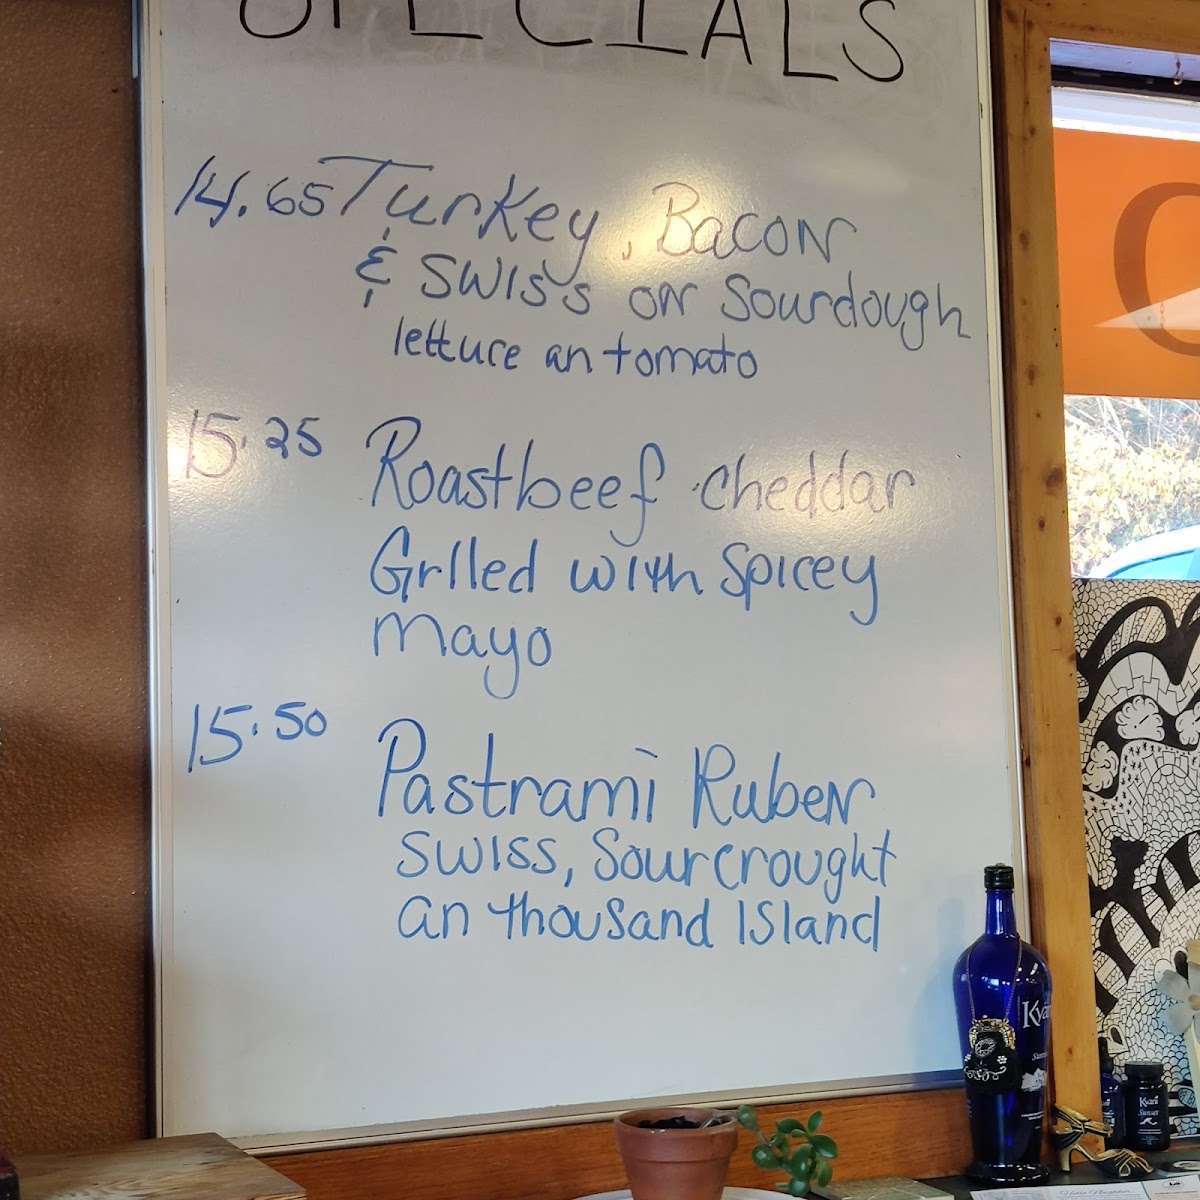 SPECIALS
14.65 Turkey, Bacon
& Swiss on Sourdough
lettuce an tomato
15.25 Roastbeef cheddar
Grlled with Spicey
mayo
15.50
Pastrami Ruben
Swiss, Sourcrought
an thousand Island
Kyäni
Sunset